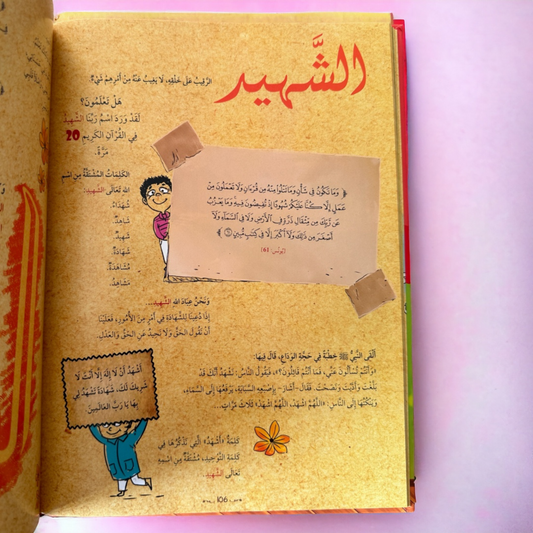 الشَّهيد
الرَّقيبُ عَلى خَلْقِهِ، لَا يَغِيبُ عَنْهُ مِنْ أَمْرِهِمْ شَيْءٌ؟
هَلْ تَعْلَمُونَ؟
لَقَدْ وَرَدَ اسْمُ رَبِّنَا الشَّهِيدِ
فِي الْقُرْآنِ الْكَرِيمِ 20
مَرَّةً.
الكَلِمَاتُ المُشْتَقَّةُ مِنِ اسْمِ
اللهِ تَعَالَى الشَّهِيدِ:
شُهَدَاءُ
شَاهِدٌ
شَهِيدٌ
شَهَادَةٌ
مُشَاهَدَةٌ
مُشَاهِدٌ
﴿ وَمَا تَكُونُ فِي شَأْنٍ وَمَا تَتْلُوا مِنْهُ مِن قُرْءَانٍ وَلَا تَعْمَلُونَ مِنْ
عَمَلٍ إِلَّا كُنَّا عَلَيْكُمْ شُهُودًا إِذْ تُفِيضُونَ فِيهِ وَمَا يَعْزُبُ
عَن رَّبِّكَ مِن مِّثْقَالِ ذَرَّةٍ فِي الْأَرْضِ وَلَا فِي السَّمَاءِ وَلَا
أَصْغَرَ مِن ذَٰلِكَ وَلَا أَكْبَرَ إِلَّا فِي كِتَابٍ مُّبِينٍ ﴾
(يُونُس: 61)
وَنَحْنُ عِبَادَ اللهِ الشَّهِيدِ...
إِذَا دُعِينَا لِلشَّهَادَةِ فِي أَمْرٍ مِنَ الأُمُورِ، فَعَلَيْنَا
أَنْ نَقُولَ الحَقَّ وَلَا نَحِيدُ عَنِ الحَقِّ وَالعَدْلِ.
أَلْقَى النَّبِيُّ ﷺ خِطْبَةً فِي حَجَّةِ الوَدَاعِ، قَالَ فِيهَا:
«وَأَنْتُمْ تُسْأَلُونَ عَنِّي، فَمَا أَنْتُمْ قَائِلُونَ؟»، فَيَقُولُ النَّاسُ: نَشْهَدُ أَنَّكَ قَدْ
بَلَّغْتَ وَأَدَّيْتَ وَنَصَحْتَ. فَقَالَ -أَشَارَ- بِإِصْبَعِهِ السَّبَّابَةِ، يَرْفَعُهَا إِلَى السَّمَاءِ،
وَيَنْكُتُهَا إِلَى النَّاسِ: «اللَّهُمَّ اشْهَدْ، اللَّهُمَّ اشْهَدْ» ثَلَاثَ مَرَّاتٍ...
أَشْهَدُ أَنْ لَا إِلَهَ إِلَّا أَنْتَ لَا
شَرِيكَ لَكَ، شَهَادَةً تَشْهَدُ لِي
بِهَا يَا رَبَّ العَالَمِينَ
كَلِمَةُ «أَشْهَدُ» الَّتِي نَذْكُرُهَا فِي
كَلِمَةِ التَّوْحِيدِ، مُشْتَقَّةٌ مِنِ اسْمِهِ
تَعَالَى الشَّهِيدِ.
106